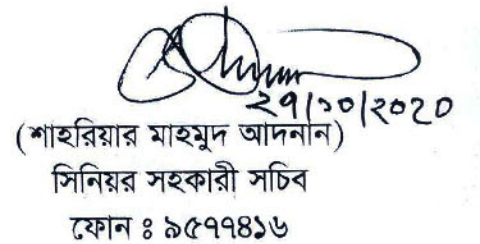 ২৭/১০/২০২০
(শাহরিয়ার মাহমুদ আদনান)
সিনিয়র সহকারী সচিব
ফোন ঃ ৯৫৭৭৪১৬